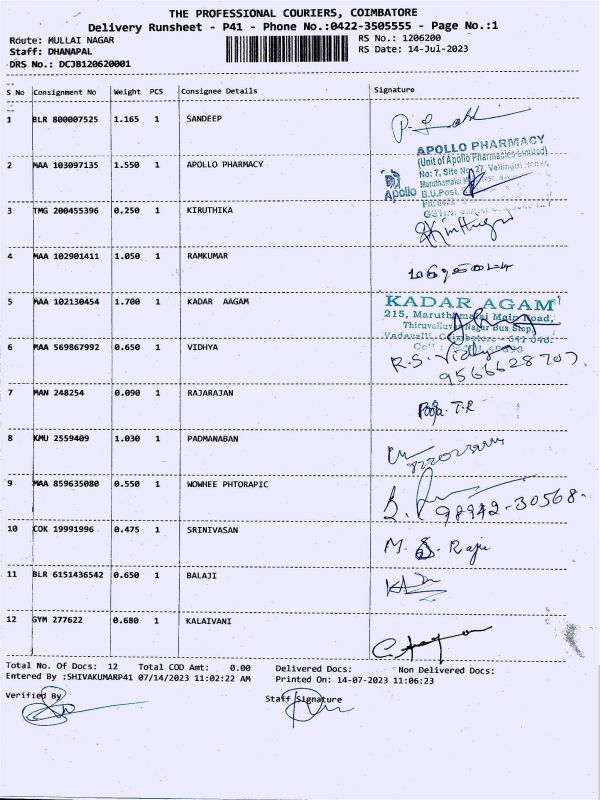 THE PROFESSIONAL COURIERS, COIMBATORE
Delivery Runsheet - P41 - Phone No.:0422-3505555 - Page No.:1
Route: MULLAI NAGAR RS No.: 1206200
Staff: DHANAPAL RS Date: 14-Jul-2023
DRS No.: DCJB120620001
S No Consignment No Weight PCS Consignee Details Signature
1 BLR 800007525 1.165 1 SANDEEP
APOLLO PHARMACY
(Unit of Apollo Pharmacies Limited)
2 MAA 103097135 1.550 1 APOLLO PHARMACY
No: 7, Site No. 27, Vellingiri
Maruthamalai
Apollo B.U.Post,
3 TMG 200455396 0.250 1 KIRUTHIKA
4 MAA 102901411 1.050 1 RAMKUMAR
5 MAA 102130454 1.700 1 KADAR AAGAM KADAR AGAM
215, Maruthamalai Main Road,
Thiruvalluvar Nagar Bus Stop,
Vadavalli, Coimbatore - 641 046.
6 MAA 569867992 0.650 1 VIDHYA R.S. Vidhya
9566628707
7 MAN 248254 0.090 1 RAJARAJAN Pooja. T.R
8 KMU 2559409 1.030 1 PADMANABAN
9 MAA 859635080 0.550 1 WOWHEE PHTORAPIC 98942-30568
10 COK 19991996 0.475 1 SRINIVASAN M. S. Raju
11 BLR 6151436542 0.650 1 BALAJI
12 GYM 277622 0.680 1 KALAIVANI
Total No. Of Docs: 12 Total COD Amt: 0.00 Delivered Docs: Non Delivered Docs:
Entered By :SHIVAKUMARP41 07/14/2023 11:02:22 AM Printed On: 14-07-2023 11:06:23
Verified By Staff Signature